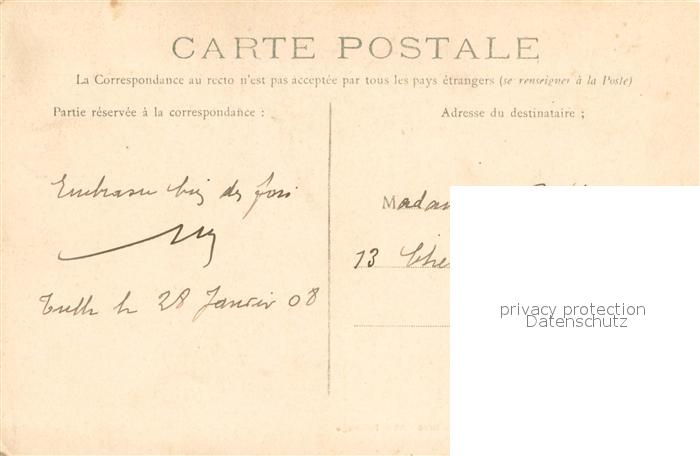 CARTE POSTALE
La Correspondance au recto n'est pas acceptée par tous les pays étrangers (se renseigner à la Poste)
Partie réservée à la correspondance :
Adresse du destinataire ;
Embrasse bien des fois
Madam
13
Tulle le 28 Janvier 08
privacy protection
Datenschutz